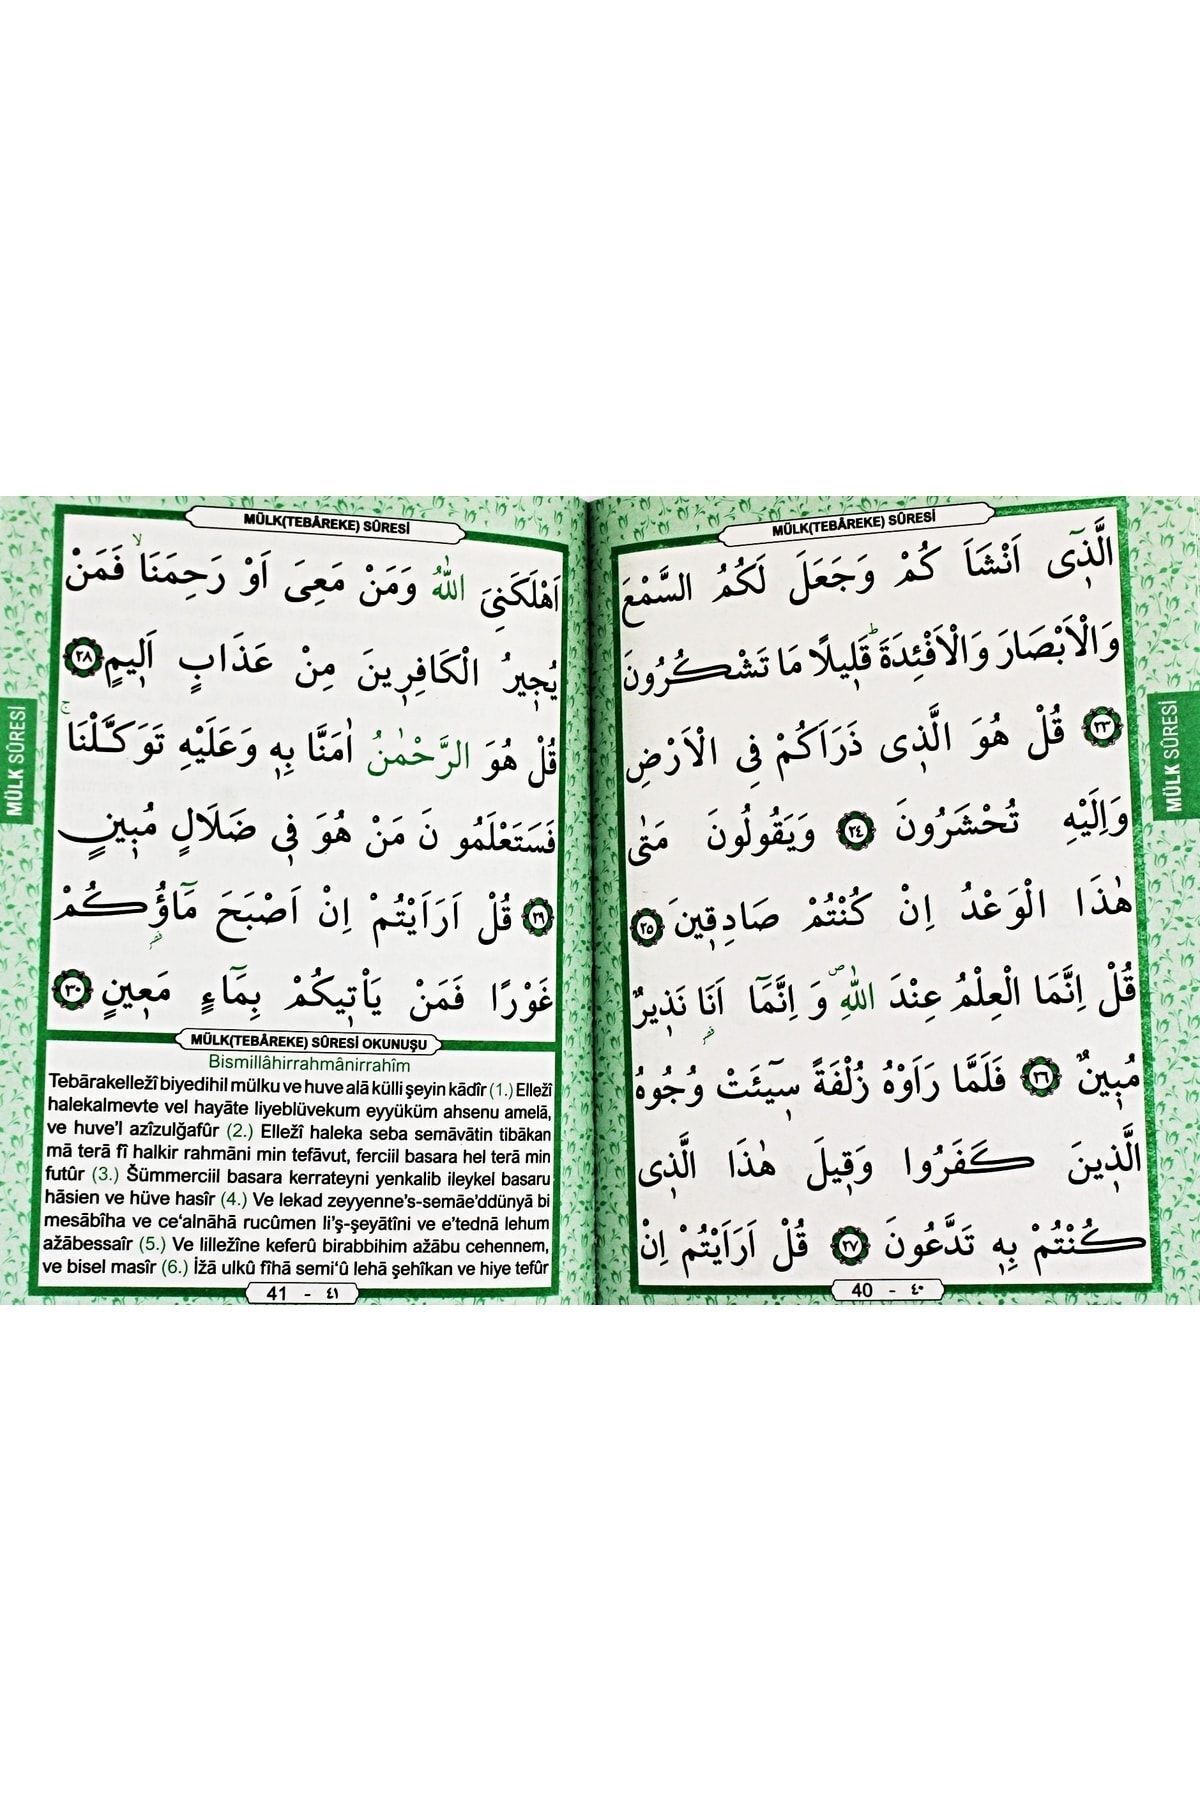 MÜLK(TEBÂREKE) SÛRESİ
الَّذ۪ٓي اَنْشَاَ كُمْ وَجَعَلَ لَكُمُ السَّمْعَ
وَالْاَبْصَارَ وَالْاَفْئِدَةَۜ قَل۪يلًا مَا تَشْكُرُونَ
﴿٢٣﴾ قُلْ هُوَ الَّذ۪ي ذَرَاَكُمْ فِي الْاَرْضِ
وَاِلَيْهِ تُحْشَرُونَ ﴿٢٤﴾ وَيَقُولُونَ مَتٰى
هٰذَا الْوَعْدُ اِنْ كُنْتُمْ صَادِق۪ينَ ﴿٢٥﴾
قُلْ اِنَّمَا الْعِلْمُ عِنْدَ اللّٰهِۖ وَ اِنَّمَٓا اَنَا۬ نَذ۪يرٌ
مُب۪ينٌ ﴿٢٦﴾ فَلَمَّا رَاَوْهُ زُلْفَةً س۪ٓيـَٔتْ وُجُوهُ
الَّذ۪ينَ كَفَرُوا وَق۪يلَ هٰذَا الَّذ۪ي
كُنْتُمْ بِه۪ تَدَّعُونَ ﴿٢٧﴾ قُلْ اَرَاَيْتُمْ اِنْ
40 - ٤٠
MÜLK SÛRESİ
MÜLK(TEBÂREKE) SÛRESİ
اَهْلَكَنِيَ اللّٰهُ وَمَنْ مَعِيَ اَوْ رَحِمَنَاۙ فَمَنْ
يُج۪يرُ الْكَافِر۪ينَ مِنْ عَذَابٍ اَل۪يمٍ ﴿٢٨﴾
قُلْ هُوَ الرَّحْمٰنُ اٰمَنَّا بِه۪ وَعَلَيْهِ تَوَكَّلْنَاۚ
فَسَتَعْلَمُو نَ مَنْ هُوَ ف۪ي ضَلَالٍ مُب۪ينٍ
﴿٢٩﴾ قُلْ اَرَاَيْتُمْ اِنْ اَصْبَحَ مَٓاؤُ۬كُمْ
غَوْرًا فَمَنْ يَأْت۪يكُمْ بِمَٓاءٍ مَع۪ينٍ ﴿٣٠﴾
MÜLK(TEBÂREKE) SÛRESİ OKUNUŞU
Bismillâhirrahmânirrahîm
Tebārakelležî biyedihil mülku ve huve alā külli şeyin kādîr (1.) Elležî
halekalmevte vel hayāte liyeblüvekum eyyüküm ahsenu amelā,
ve huve'l azîzulğafûr (2.) Elležî haleka seba semāvātin tibākan
mā terā fî halkir rahmāni min tefāvut, ferciil basara hel terā min
futûr (3.) Šümmerciil basara kerrateyni yenkalib ileykel basaru
hāsien ve hüve hasîr (4.) Ve lekad zeyyenne's-semāe'ddünyā bi
mesābîha ve ce‘alnāhā rucûmen li'ş-şeyātîni ve e'tednā lehum
ažābessaîr (5.) Ve lilležîne keferû birabbihim ažābu cehennem,
ve bisel masîr (6.) İžā ulkû fîhā semi‘û lehā şehîkan ve hiye tefûr
41 - ٤١
MÜLK SÛRESİ